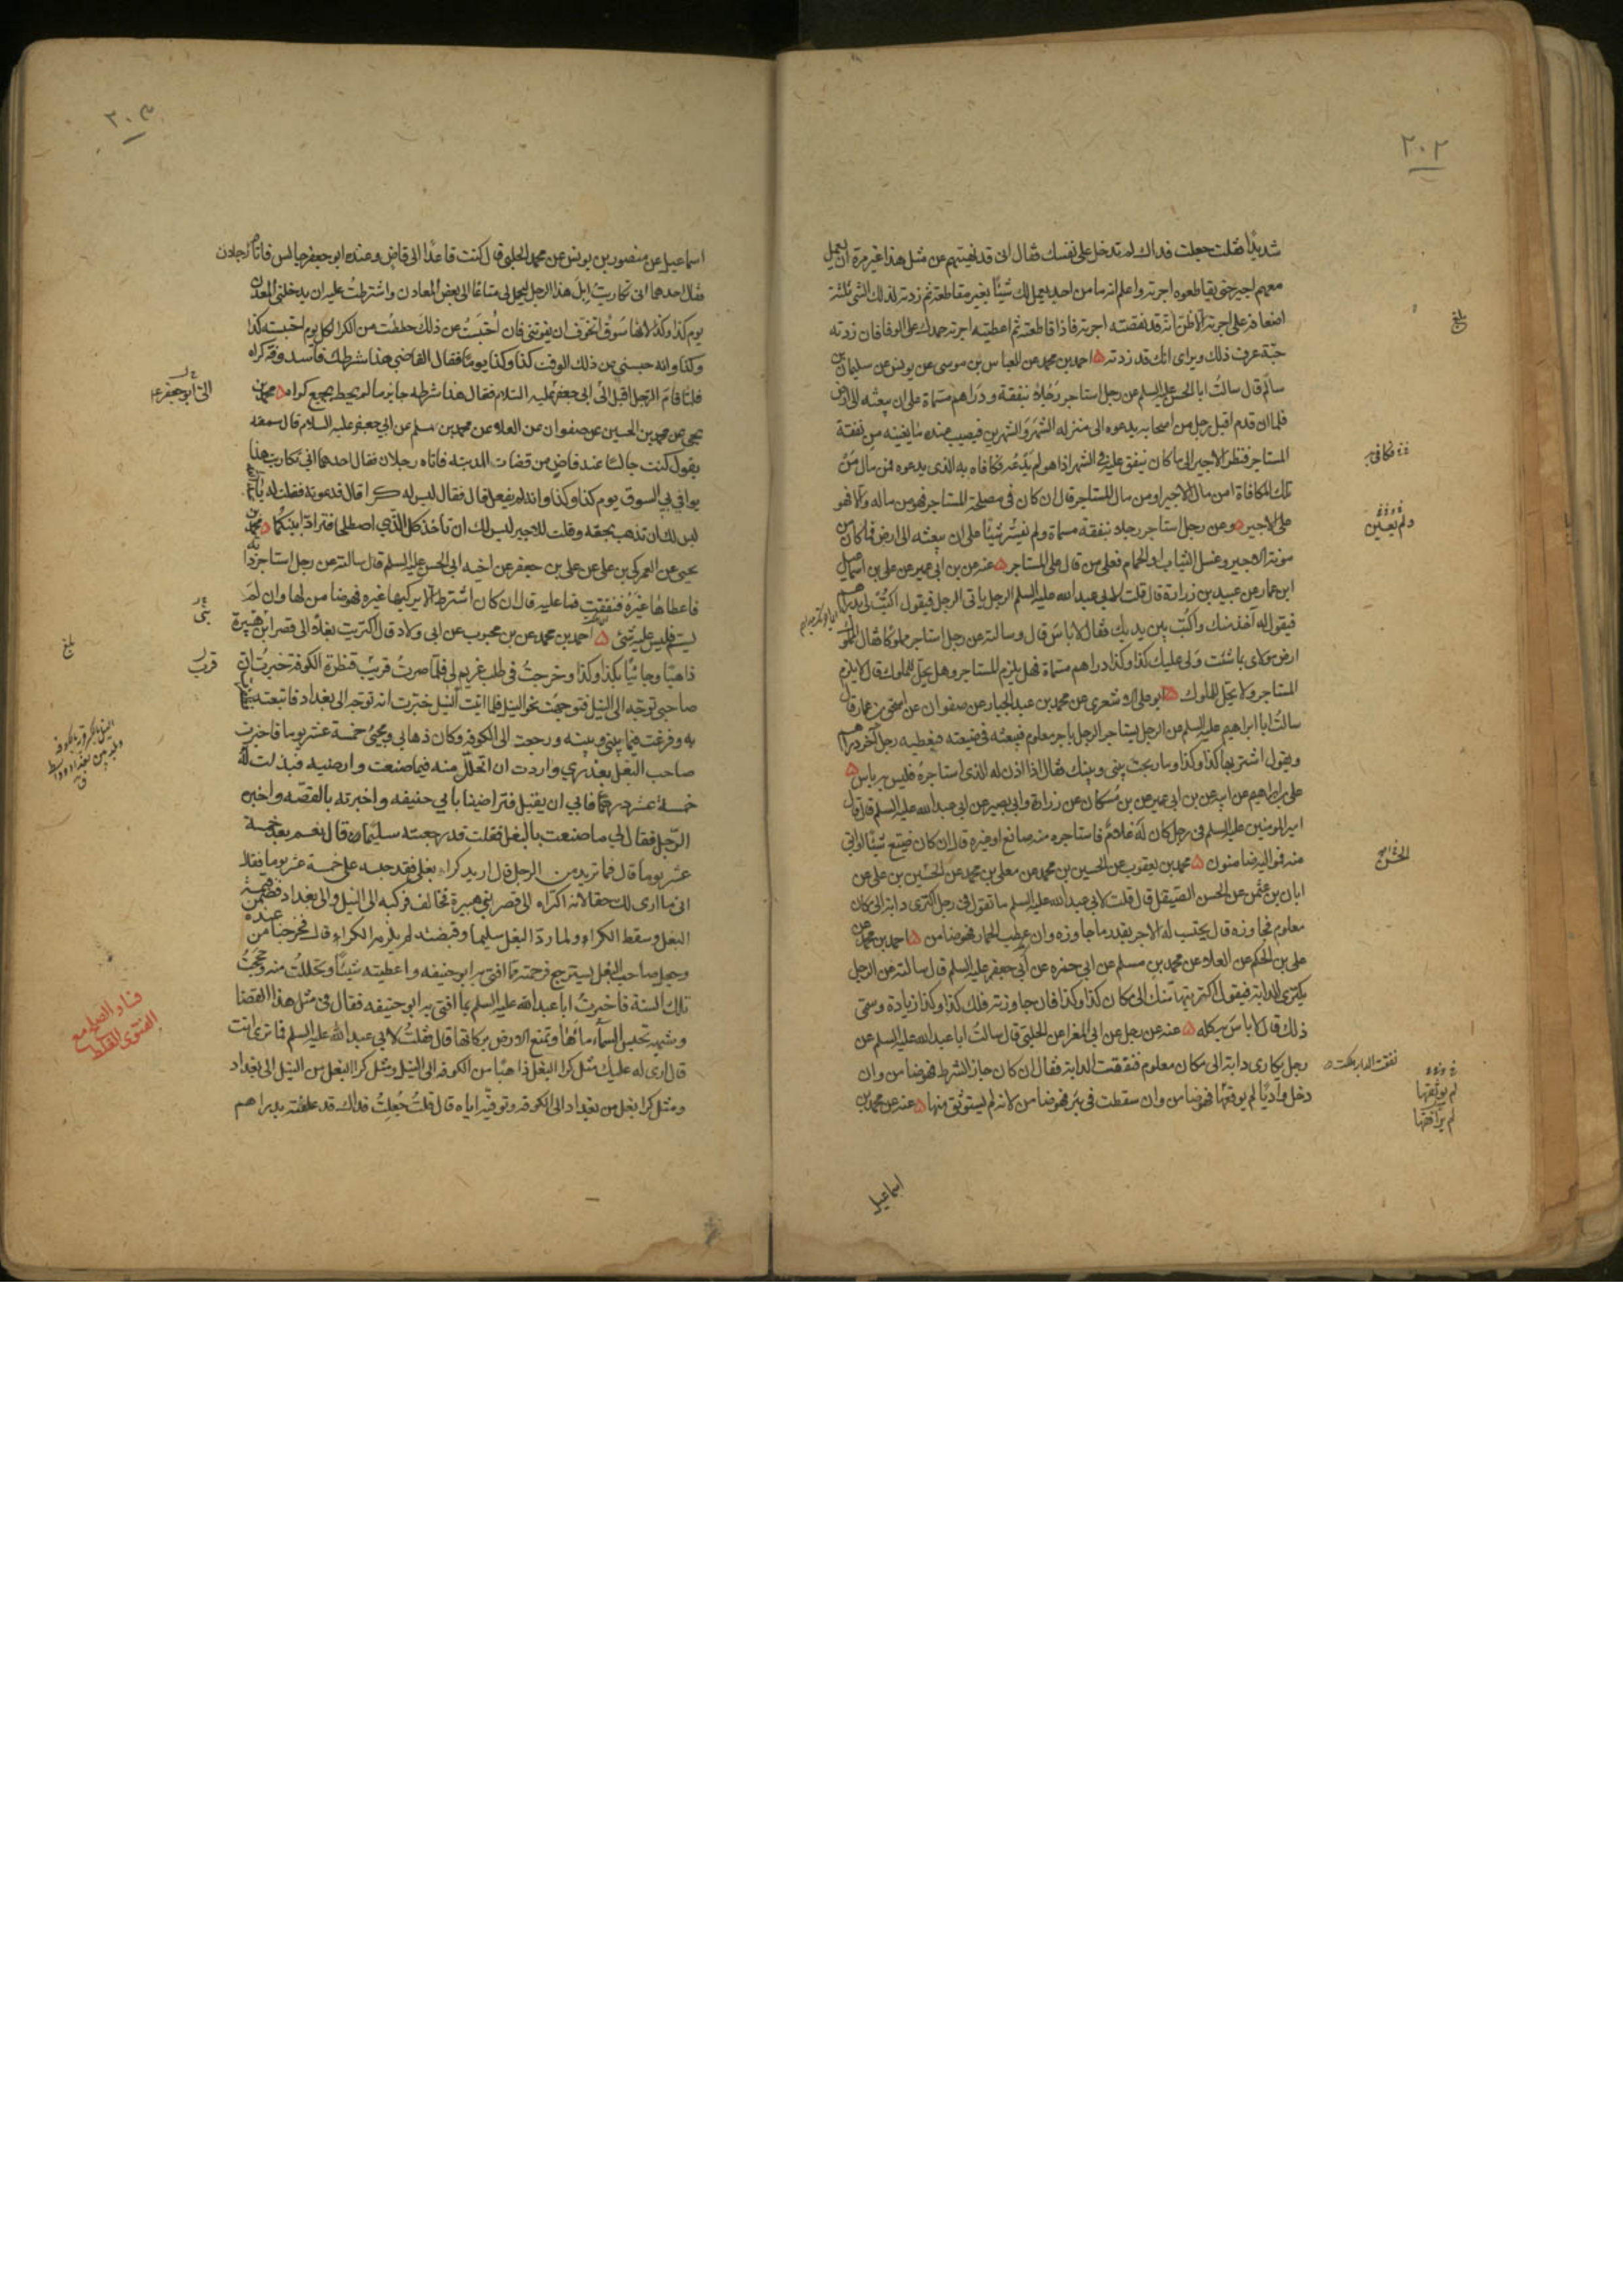 ٢٠٢
شديدًا فقلت جعلت فداك لم تدخل على نفسك فقال انى قد نهيتهم عن مثل هذا غير مرة ان يعمل
معهم اجير حتى يقاطعوه اجرته واعلم انه ما من احد يعمل لك شيئًا بغير مقاطعة ثم زدته لذلك الشى ثلثة
اضعافه على اجرته الا ظن انك قد نقصته اجرته فاذا قاطعته ثم اعطيته اجرته حمدك على الوفا فان زدته
حبّة عرف ذلك ويراى انك قد زدته ۵ احمد بن محمد عن العباس بن موسى عن يونس عن سليمان بن
سالم قال سالتُ ابا الحسن عليه السلم عن رجل استاجر رجلا بنفقة ودراهم مسماة على ان يبعثه الى ارض
فلما ان قدم اقبل رجل من اصحابه يدعوه الى منزله الشهر والشهرين فيصيب عنده ما يغنيه من نفقة
المستاجر فنظر الاجير الى ما كان ينفق عليه فى الشهر اذا هو لم يدعه فكافاه به الذى يدعوه فمن مال مَن
تلك المكافاة امن مال الاجير او من مال المستاجر قال ان كان فى مصلحة المستاجر فهو من ماله والا فهو
على الاجير ۵ وعن رجل استاجر رجلا بنفقة مسماة ولم يفسّر شيئًا على ان يبعثه الى ارض فما كان من
مونة الاجير وغسل الثياب او الحمام فعلى من قال على المستاجر ۵ عنه عن بن ابى عمير عن على بن اسماعيل
ابن عمار عن عبيد بن زرارة قال قلت لابى عبد الله عليه السلم الرجل ياتى الرجل فيقول اكتب لى بدراهم
فيقول له آخذ منك واكتب بين يديك فقال لا باس قال وسالته عن رجل استاجر مملوكا فقال المملوك
ارض مولاى بما شئت ولى عليك كذا وكذا دراهم مسماة فهل يلزم المستاجر وهل يحل للمملوك قال لا يلزم
المستاجر ولا يحل للملوك ۵ ابو على الاشعرى عن محمد بن عبد الجبار عن صفوان عن اسحق بن عمار قال
سالتُ ابا ابراهيم عليه السلم عن الرجل يستاجر الرجل باجر معلوم فيبعثه فى ضيعته فيعطيه رجل آخر دراهم
ويقول اشتر بها كذا وكذا وما ربحت بينى وبينك فقال اذا اذن له الذى استاجره فليس به باس ۵
على بن ابراهيم عن ابيه عن بن ابى عمير عن بن مسكان عن زرارة وابى بصير عن ابى عبد الله عليه السلم قال قال
امير المومنين عليه السلم فى رجل كان له غلام فاستاجره منه صانع او غيره قال ان كان ضيّع شيئًا او ابق
منه فمواليه ضامنون ۵ محمد بن يعقوب عن الحسين بن محمد عن معلى بن محمد عن الحسين بن على عن
ابان بن عثمن عن الحسن الصيقل قال قلت لابى عبد الله عليه السلم ما تقول فى رجل اكترى دابة الى مكان
معلوم فجاوزه قال يحتسب له الاجر بقدر ما جاوزه وان عطب الحمار فهو ضامن ۵ احمد بن محمد عن
على بن الحكم عن العلا عن محمد بن مسلم عن ابى حمزه عن ابى جعفر عليه السلم قال سالته عن الرجل
يكترى الدابة فيقول اكتريتها منك الى مكان كذا وكذا فان جاوزته فلك كذا وكذا زيادة وسمى
ذلك قال لا باس به كله ۵ عنه عن رجل عن ابى المغرا عن الحلبى قال سالتُ ابا عبد الله عليه السلم عن
رجل يكارى دابة الى مكان معلوم فنفقت الدابة فقال ان كان جاز الشرط فهو ضامن وان
دخل واديًا لم يوثقها فهو ضامن وان سقطت فى بئر فهو ضامن لانه لم يستوثق منها ۵ عنه عن محمد بن
اسماعيل
بلغ
فكافى به
ولم يعيّن
الحسن
لم يوثقها
لم يرافقها
٢٠٣
اسماعيل عن منصور بن يونس عن محمد الحلبى قال كنت قاعدًا الى قاض وعنده ابو جعفر جالس فاتاه رجلان
فقال احدهما انى تكاريت ابل هذا الرجل ليحمل لى متاعًا الى بعض المعادن واشترطت عليه ان يدخلنى المعدن
يوم كذا وكذا لانها سوق اتخوف ان يفوتنى فان احتبستُ عن ذلك حططت من الكرا لكل يوم احتبسته كذا
وكذا وانه حبسنى عن ذلك الوقت كذا وكذا يومًا فقال القاضى هذا شرط فاسد وفّه كراه
فلما قام الرجل اقبل الىّ ابى جعفر عليه السلام فقال هذا شرطه جايز ما لم يحط بجميع كراه ۵ محمد بن
يحيى عن محمد بن الحسين عن صفوان عن العلاء عن محمد بن مسلم عن ابى جعفر عليه السلام قال سمعته
يقول كنت جالسًا عند قاض من قضات المدينه فاتاه رجلان فقال احدهما انى تكاريت هذا
يوافى بى السوق يوم كذا وكذا وانه لم يفعل قال فقال ليس له كرا قال فدعوته فقلت له يا
ليس لك ان تذهب بحقه وقلت للاجير ليس لك ان تاخذ كل الذى اصطلحا فترادّا بينكما ۵ محمد بن
يحيى عن العمركى بن على عن على بن جعفر عن اخيه ابى الحسن عليه السلم قال سالته عن رجل استاجر دابه
فاعطاها غيره فنفقت فما عليه قال ان كان اشترط الا يركبها غيره فهو ضامن لها وان لم
يسم فليس عليه شئى ۵ احمد بن محمد عن بن محبوب عن ابى ولاد قال اكتريت بغلا الى قصر ابن هبيرة
ذاهبًا وجائيًا بكذا وكذا وخرجتُ فى طلب غريم لى فلما صرتُ قريب قنطرة الكوفة خبرتُ ان
صاحبى توجه الى النيل فتوجهت نحو النيل فلما اتيت النيل خبّرت انه توجه الى بغداد فاتبعته
به وفرغت فيما بينى وبينه ورجعت الى الكوفه وكان ذهابى ومجيئ خمسة عشر يوما فاخبرت
صاحب البغل بعذرى واردت ان اتحلل منه فيما صنعت وارضيه فبذلت له
خمسة عشر درهمًا فابى ان يقبل فتراضينا بابى حنيفه واخبرته بالقصّه واخبره
الرجل فقال لى ما صنعت بالبغل فقلت قد رجعته سليمًا قال نعم بعد خمسة
عشر يوما قال فما تريد من الرجل قال اريد كراء بغلى فقد حبسه على خمسة عشر يوما فقال
انى ما ارى لك حقا لانه اكتراه الى قصر ابن هبيرة فخالف فركبه الى النيل والى بغداد فضمن قيمة
البغل وسقط الكراء ولما ردّ البغل سليما وقبضته لم يلزمه الكراء قال فخرجنا من عنده
وجعل صاحب البغل يسترجع فرحمته مما افتى به ابو حنيفه واعطيته شيئًا وتحللتُ منه وحججتُ
تلك السنة فاخبرتُ ابا عبد الله عليه السلم بما افتى به ابو حنيفه فقال فى مثل هذا القضا
وشبهه تحبس السماء ماءها وتمنع الارض بركاتها قال فقلتُ لابى عبد الله عليه السلم فما ترى انت
قال ارى له عليك مثل كرا البغل ذاهبًا من الكوفه الى النيل ومثل كرا البغل من النيل الى بغداد
ومثل كرا بغل من بغداد الى الكوفه وتوفّيه اياه قال قلتُ جُعلتُ فداك قد علفته بدراهم
الىّ ابو جعفر
شئ
قرب
بلغ
فساد الصلح مع
الفتوى الغلط